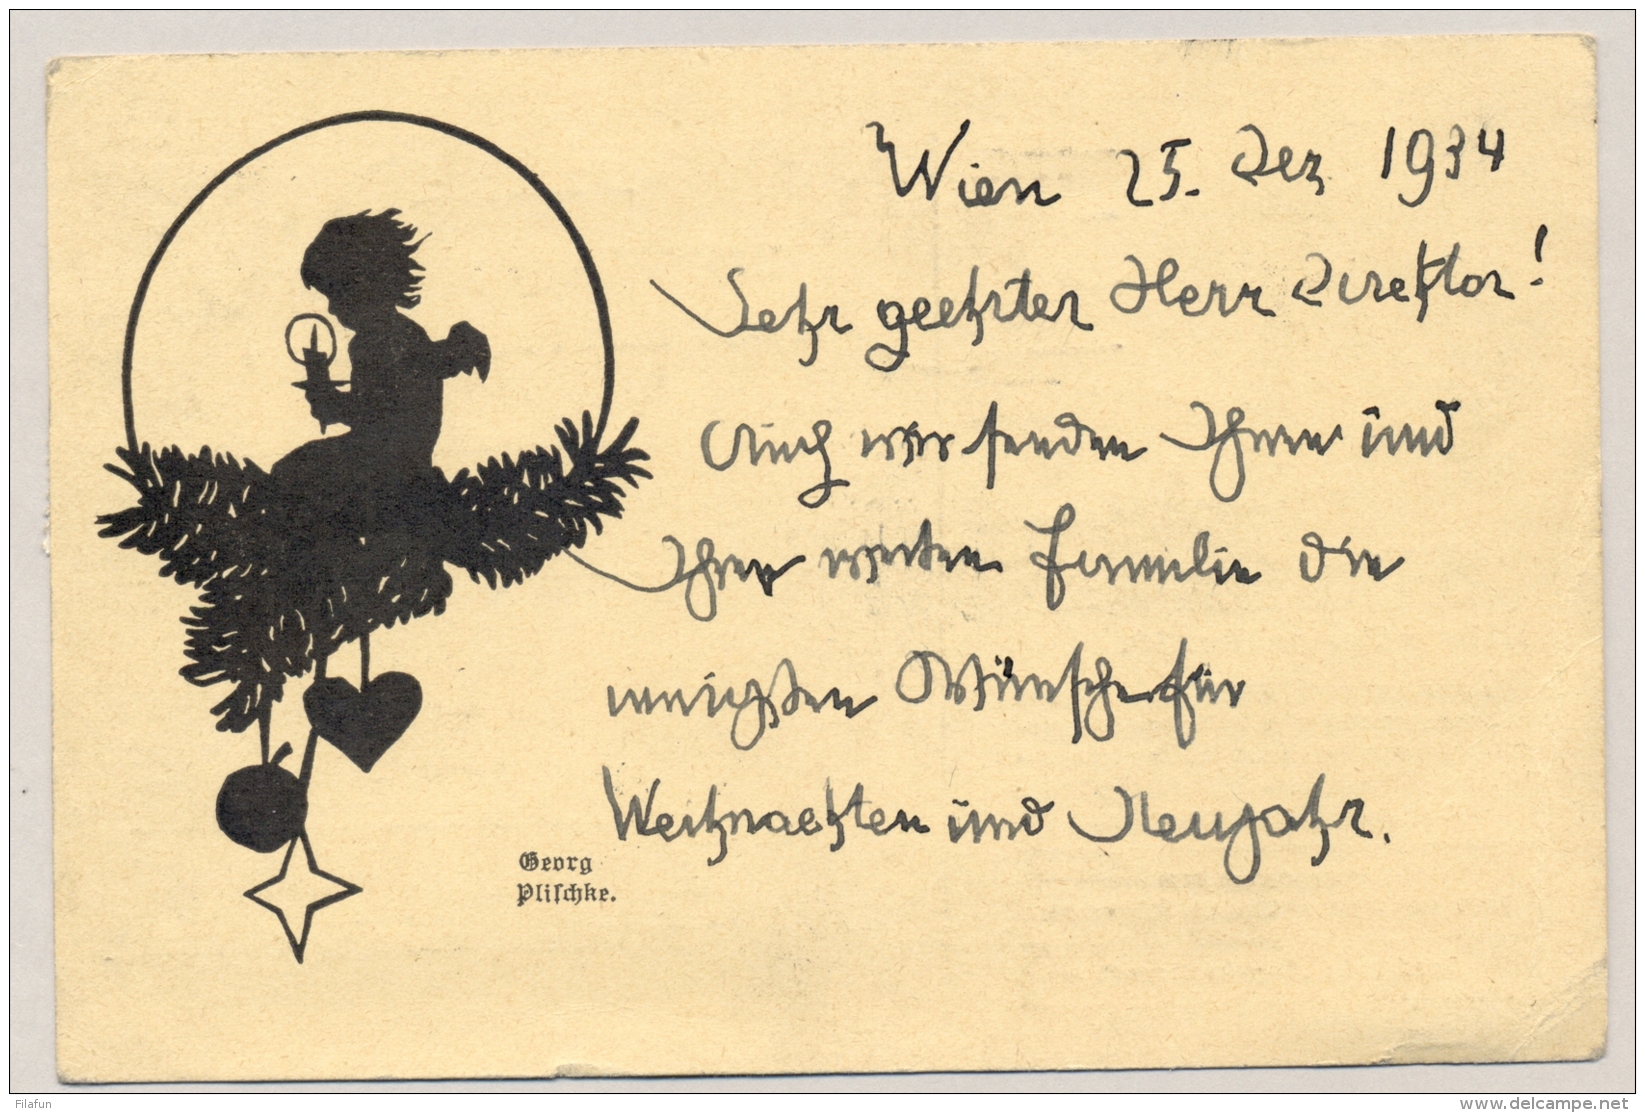 Wien 25. Dez 1934
Sehr geehrter Herr Direktor!
Auch wir senden Ihnen und
Ihrer werten Familie die
innigsten Wünsche für
Weihnachten und Neujahr.
Georg
Pliſchke.
Filafun
www.delcampe.net